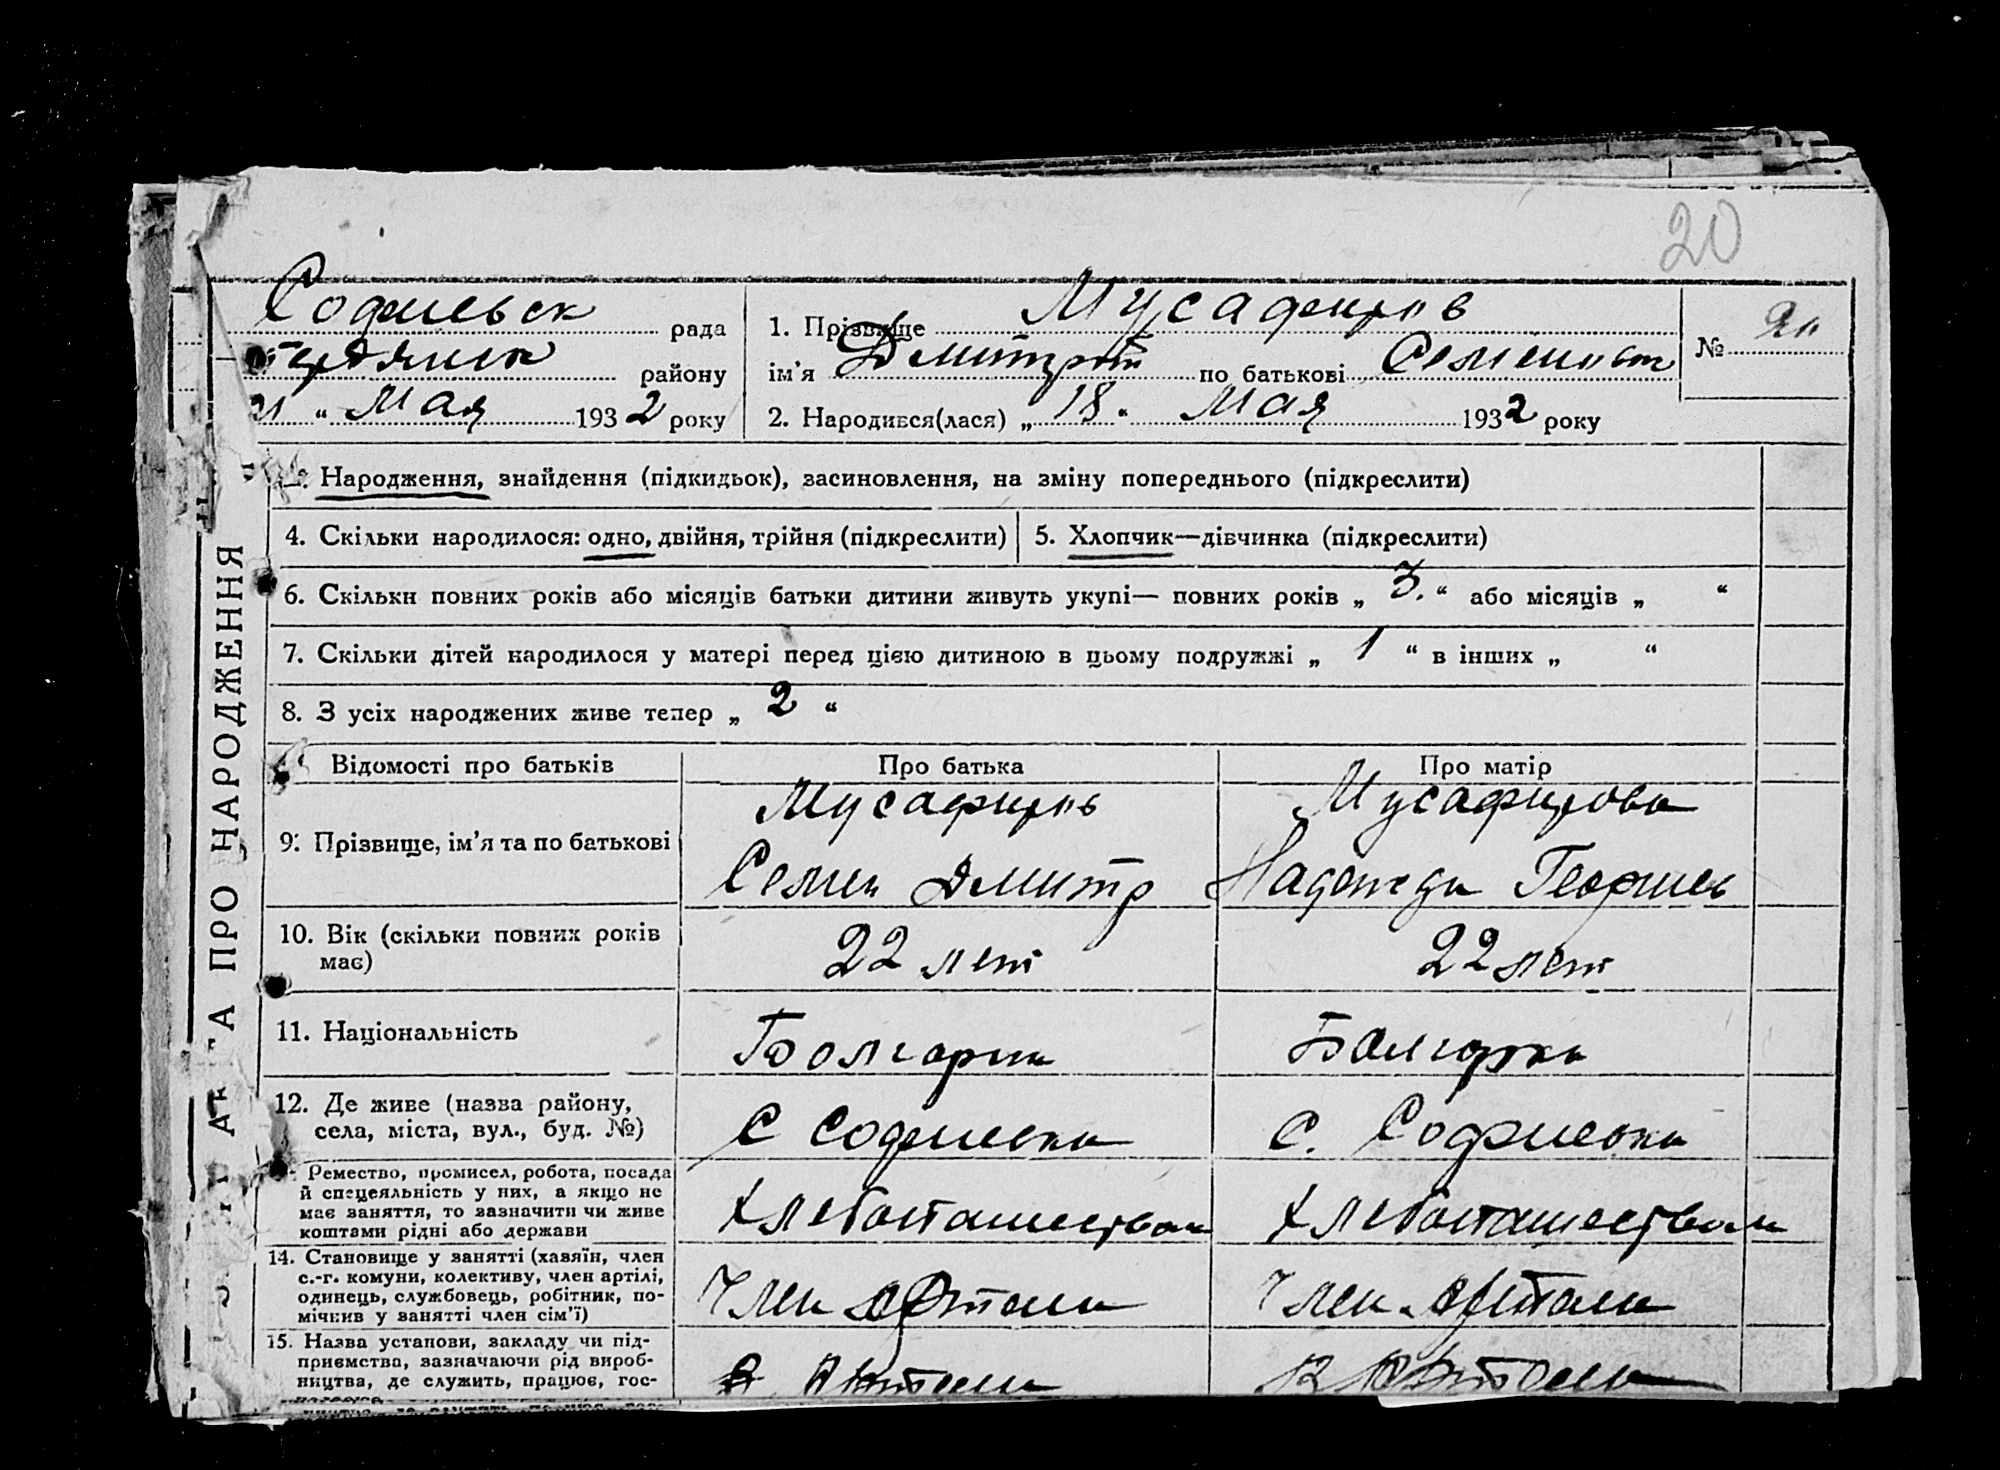 20
Софиевск рада
Бердянск району
21 " Мая 1932 року
1. Прізвище Мусафиров
ім'я Дмитрий по батькові Семенович
2. Народився(лася) „ 18 " Мая 1932 року
№ 20
АКТА ПРО НАРОДЖЕННЯ
Народження, знайдення (підкидьок), засиновлення, на зміну попереднього (підкреслити)
4. Скільки народилося: одно, двійня, трійня (підкреслити)
5. Хлопчик—дівчинка (підкреслити)
6. Скільки повних років або місяців батьки дитини живуть укупі— повних років „ 3. " або місяців „ "
7. Скільки дітей народилося у матері перед цією дитиною в цьому подружжі „ 1 " в інших „ "
8. З усіх народжених живе тепер „ 2 "
Відомості про батьків
Про батька
Про матір
9. Прізвище, ім'я та по батькові
Мусафиров
Семен Дмитр
Мусафирова
Надежда Георгиев
10. Вік (скільки повних років
має)
22 лет
22 лет
11. Національність
Болгарин
Болгарка
12. Де живе (назва району,
села, міста, вул., буд. №)
С Софиевка
с. Софиевка
Ремество, промисел, робота, посада
й спецеяльність у них, а якщо не
має заняття, то зазначити чи живе
коштами рідні або держави
Хлебопашеством
Хлебопашеством
14. Становище у занятті (хазяїн, член
с.-г. комуни, колективу, член артілі,
одинець, службовець, робітник, по-
мічнив у занятті член сім'ї)
Член Артели
Член Артели
15. Назва установи, закладу чи під-
приємства, зазначаючи рід вироб-
ництва, де служить, працює, гос-
В Артели
В Артели